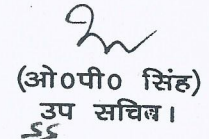 (ओ0पी0 सिंह)
उप सचिव।